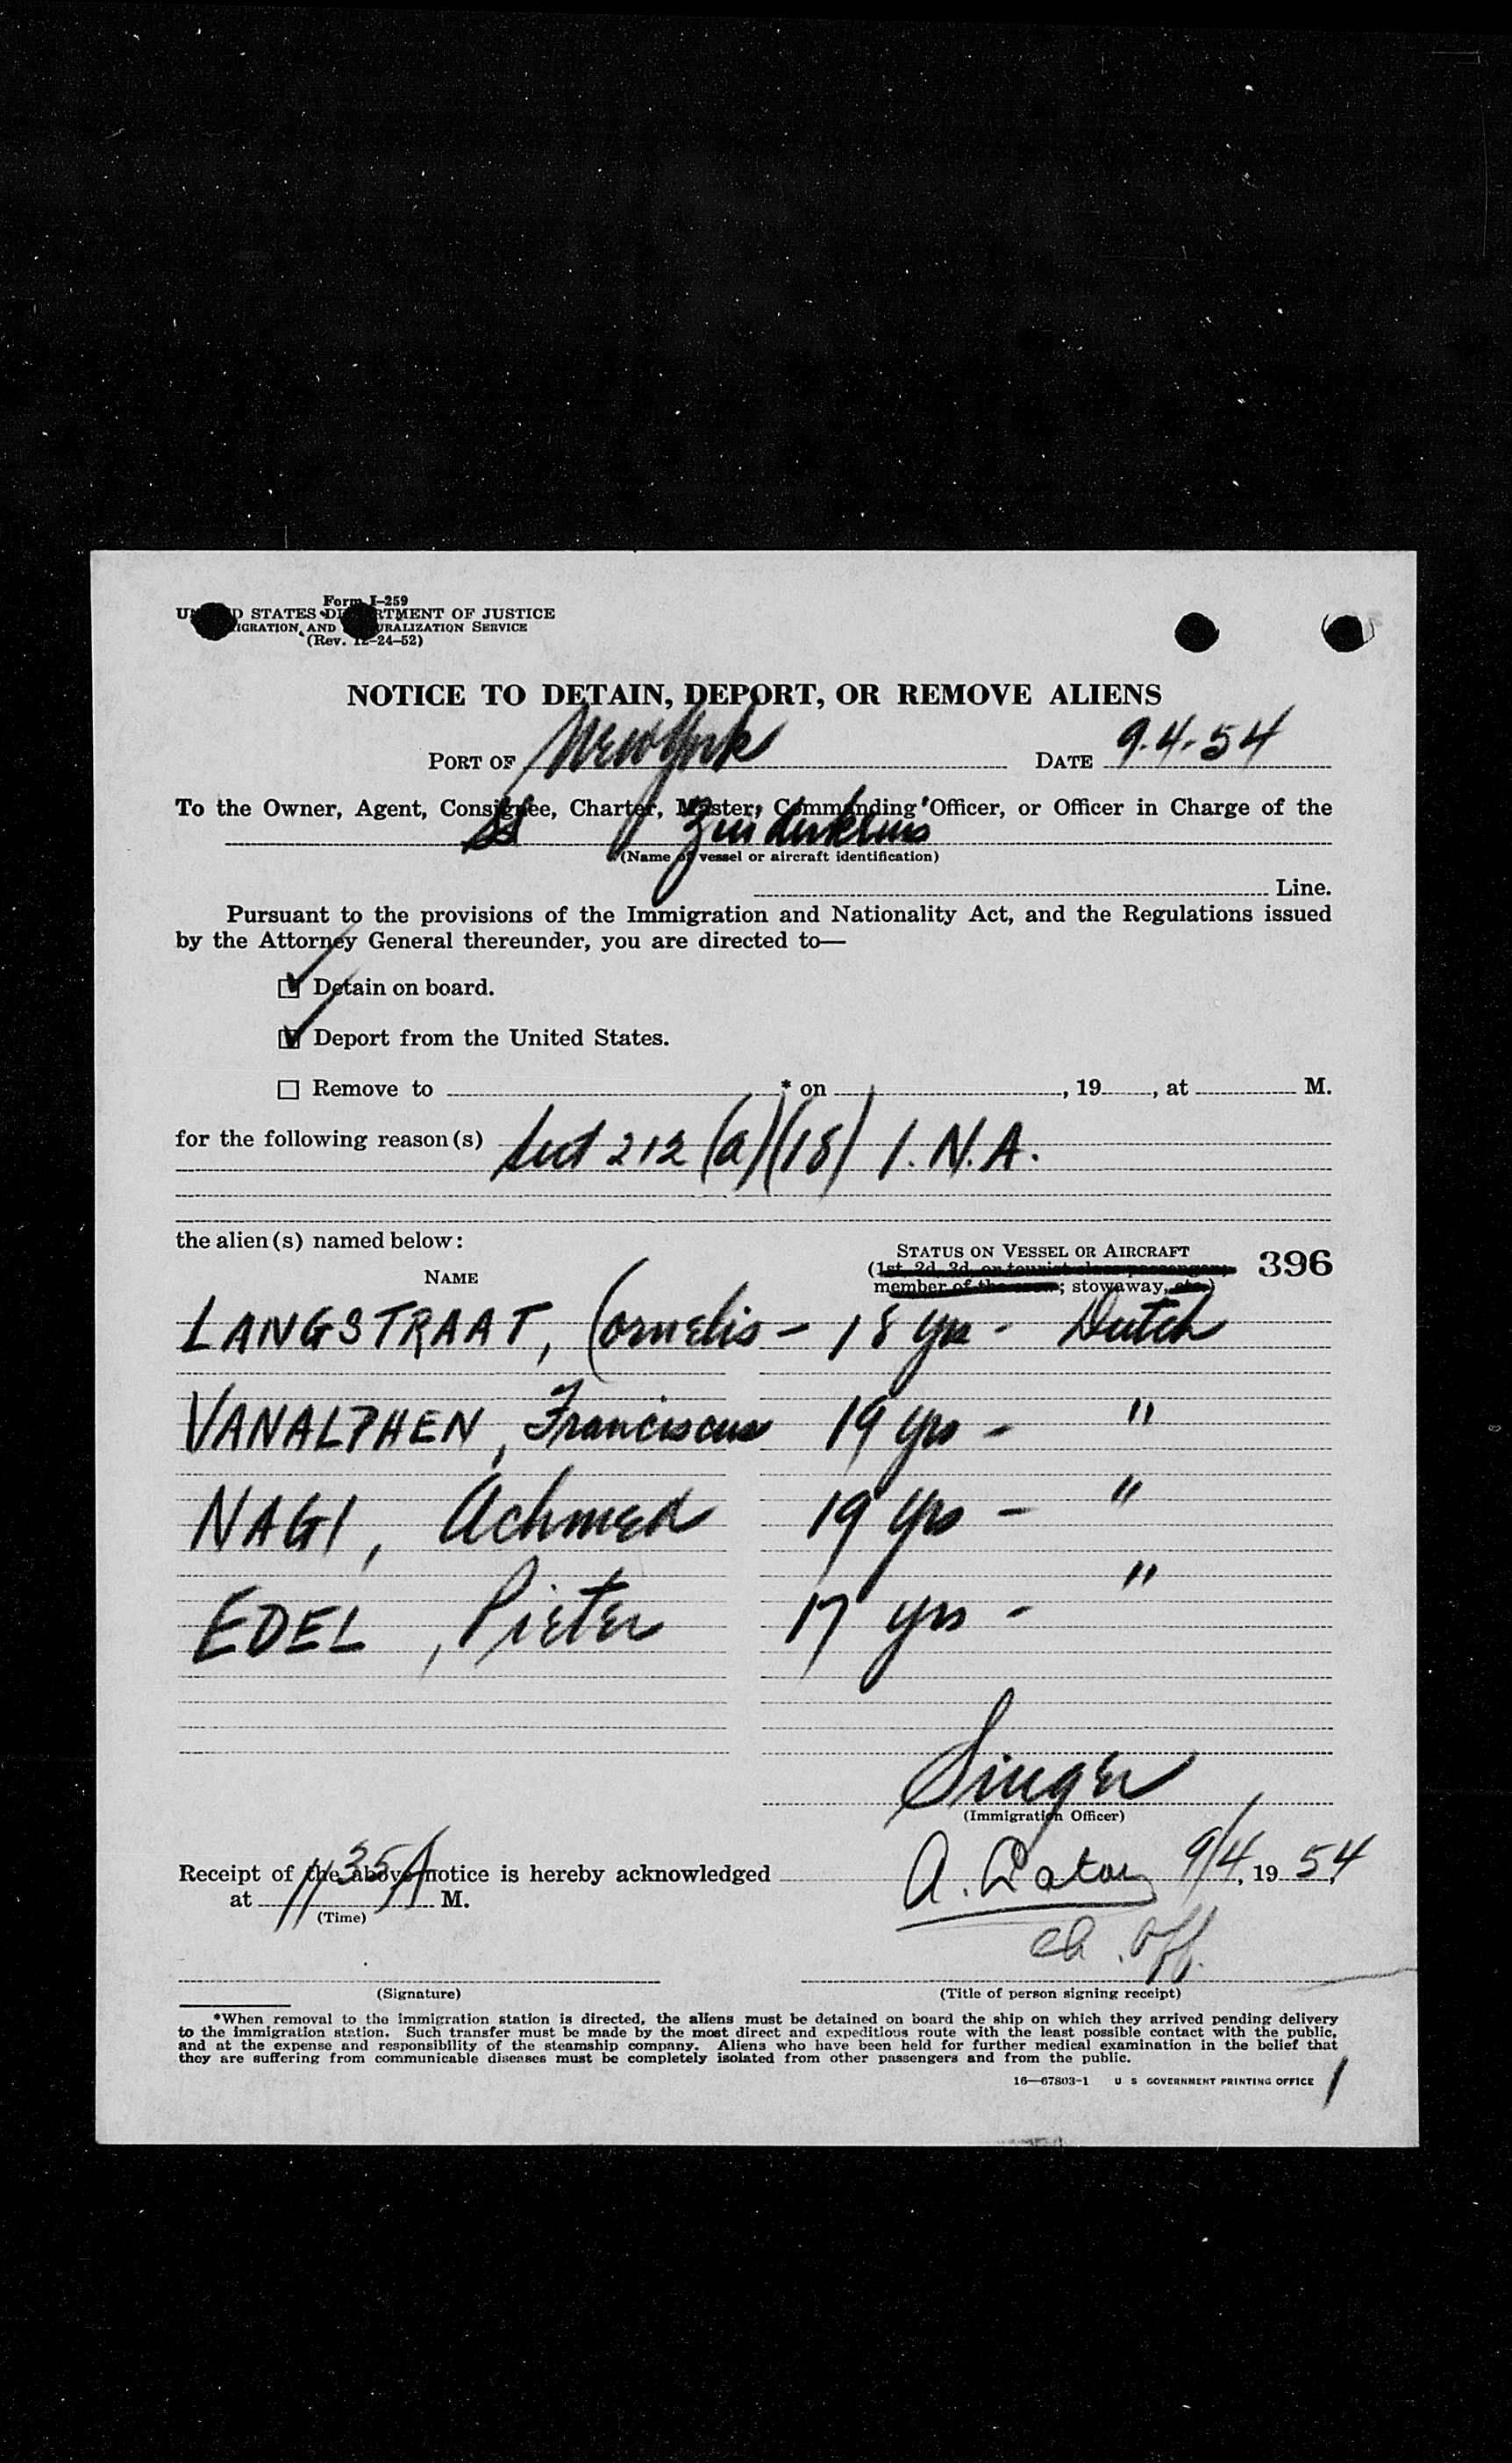 Form I-259
UNITED STATES DEPARTMENT OF JUSTICE
IMMIGRATION AND NATURALIZATION SERVICE
(Rev. 12-24-52)
NOTICE TO DETAIN, DEPORT, OR REMOVE ALIENS
PORT OF New York DATE 9-4-54
To the Owner, Agent, Consignee, Charter, Master, Commanding Officer, or Officer in Charge of the
SS
(Name of vessel or aircraft identification)
Line.
Pursuant to the provisions of the Immigration and Nationality Act, and the Regulations issued
by the Attorney General thereunder, you are directed to—
Detain on board.
Deport from the United States.
Remove to * on , 19 , at M.
for the following reason(s) Sect 212 (a)(18) I.N.A.
the alien(s) named below:
NAME STATUS ON VESSEL OR AIRCRAFT 396
(1st, 2d, 3d, or tourist class passenger;
member of the crew; stowaway, etc.)
LANGSTRAAT, Cornelis - 18 yrs - Dutch
VANALPHEN, Franciscus 19 yrs - "
NAGI, Achmed 19 yrs - "
EDEL, Pieter 17 yrs - "
Singer
(Immigration Officer)
Receipt of the above notice is hereby acknowledged A. 9/4, 19 54
at 11 35 A M.
(Time)
Ch. Off.
(Signature) (Title of person signing receipt)
*When removal to the immigration station is directed, the aliens must be detained on board the ship on which they arrived pending delivery
to the immigration station. Such transfer must be made by the most direct and expeditious route with the least possible contact with the public,
and at the expense and responsibility of the steamship company. Aliens who have been held for further medical examination in the belief that
they are suffering from communicable diseases must be completely isolated from other passengers and from the public.
16—67803-1 U S GOVERNMENT PRINTING OFFICE 1